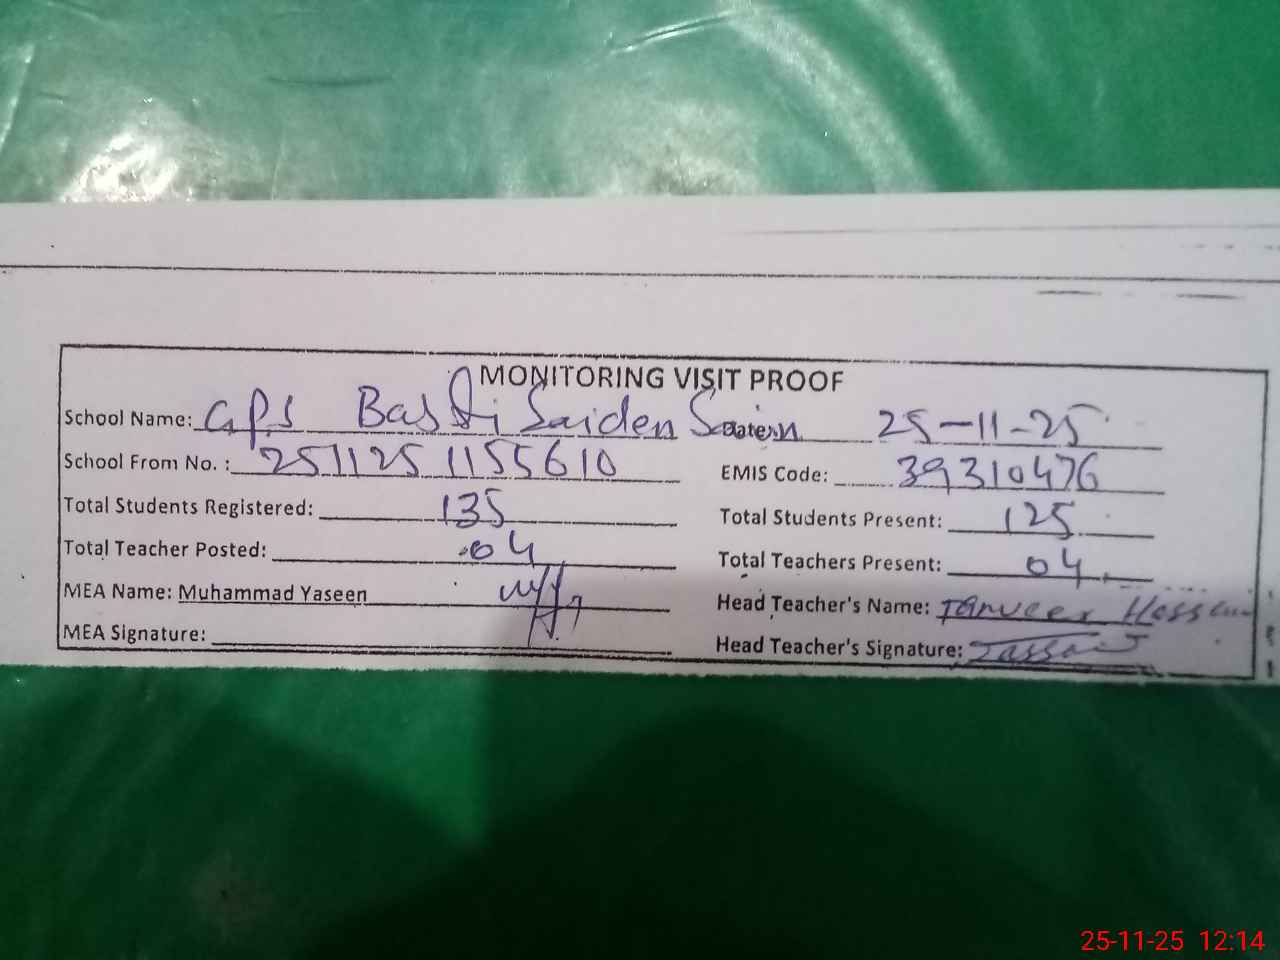 MONITORING VISIT PROOF
School Name: GPS Basti Saiden Sain Date: 25-11-25
School From No. : 2511251155610 EMIS Code: 39310476
Total Students Registered: 135 Total Students Present: 125
Total Teacher Posted: 04 Total Teachers Present: 04
MEA Name: Muhammad Yaseen Head Teacher's Name: Tanveer Hassan
MEA Signature: Head Teacher's Signature:
25-11-25 12:14